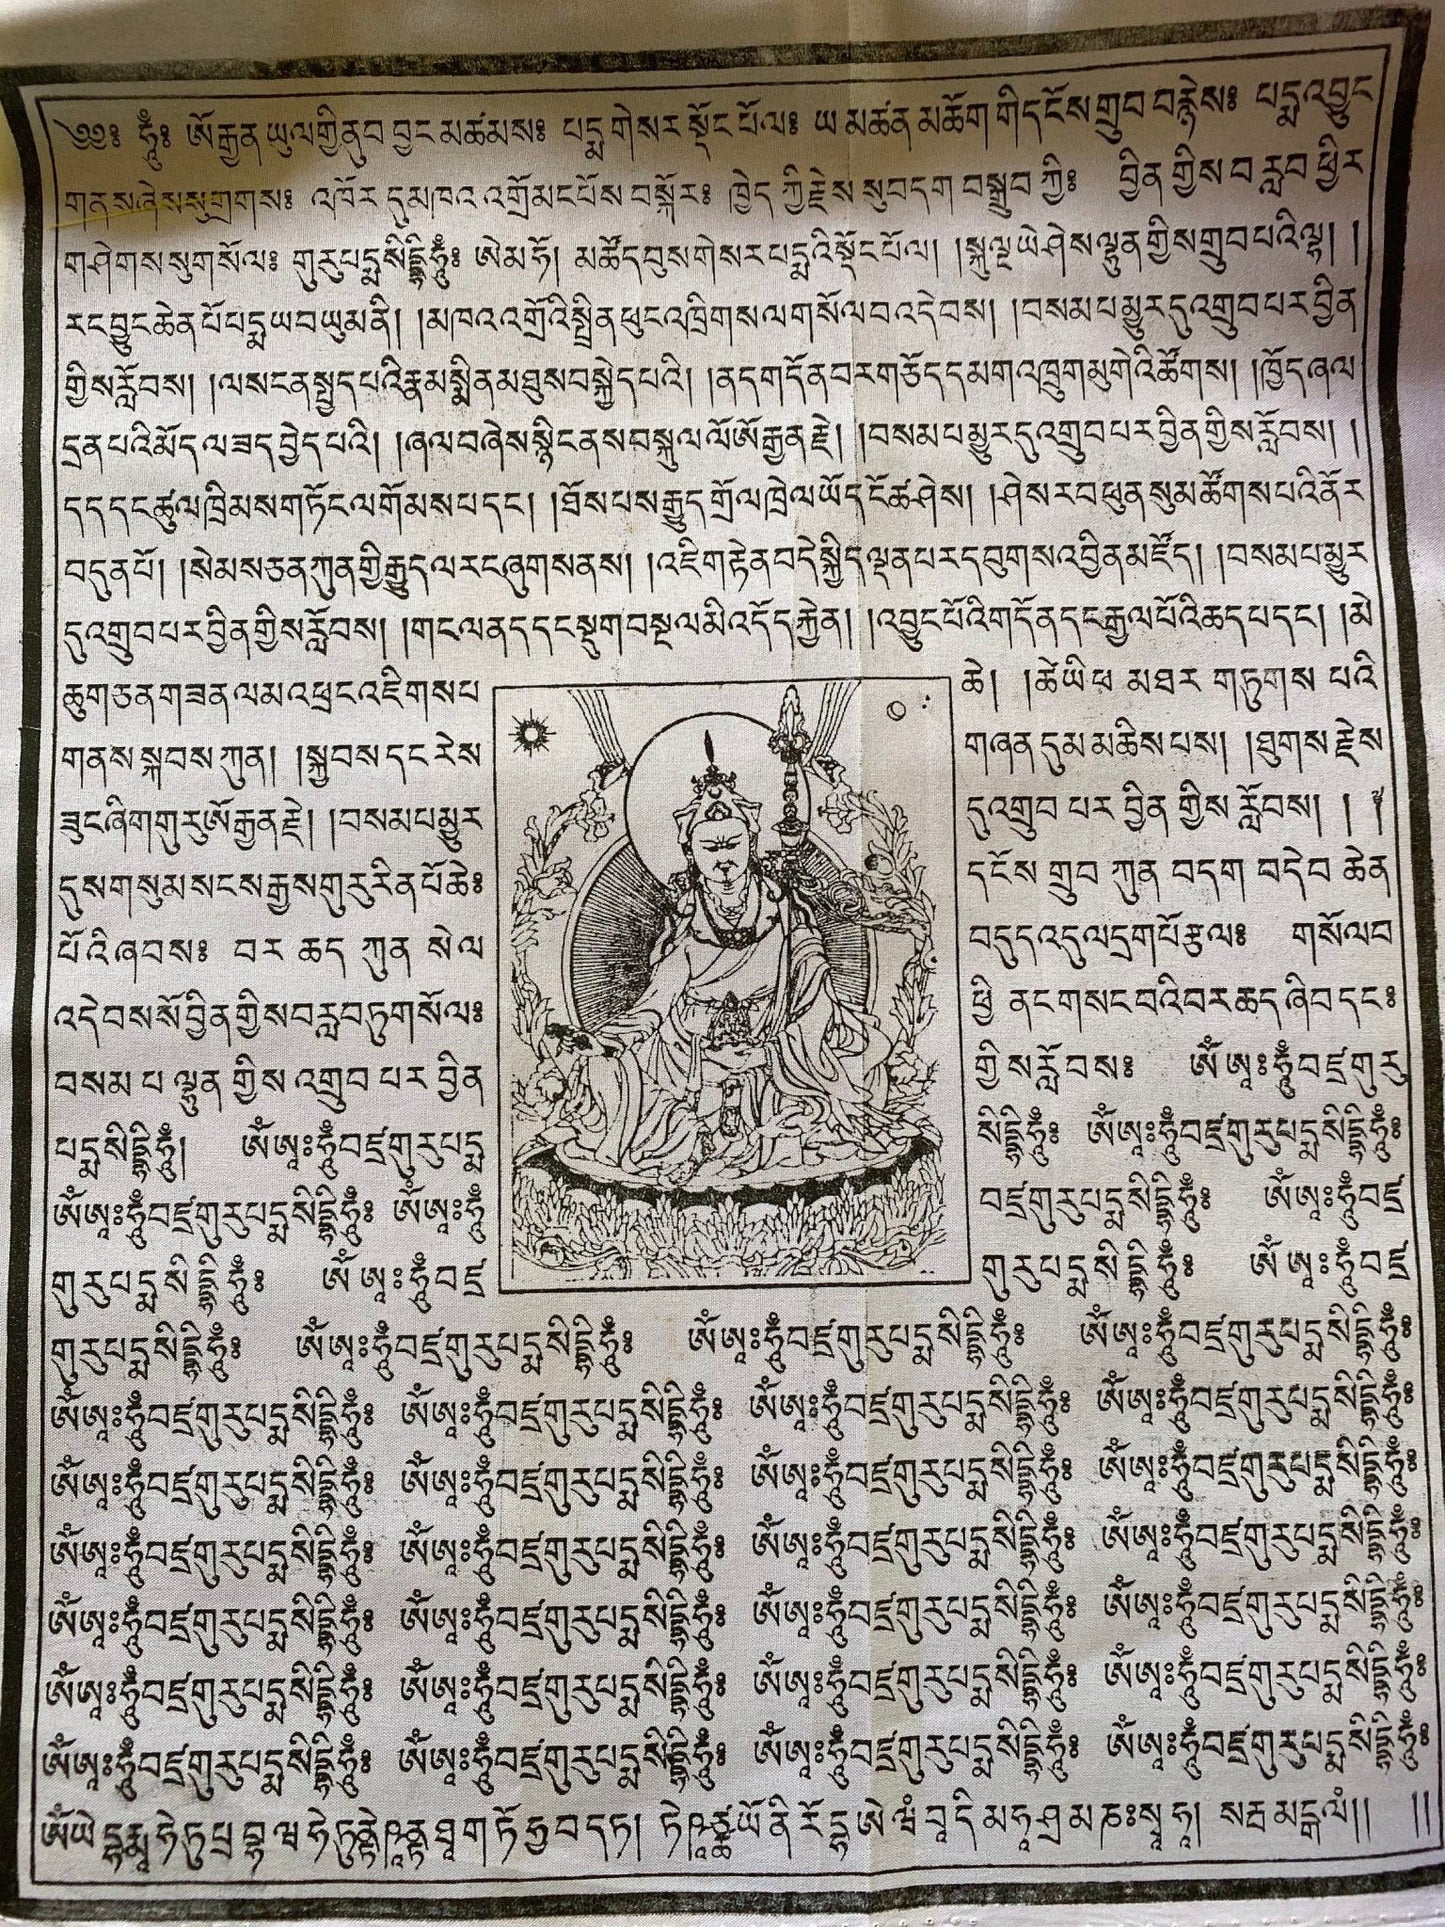 ༄༅༔ ཧཱུྃ༔ ཨོ་རྒྱན་ཡུལ་གྱི་ནུབ་བྱང་མཚམས༔ པདྨ་གེ་སར་སྡོང་པོ་ལ༔ ཡ་མཚན་མཆོག་གི་དངོས་གྲུབ་བརྙེས༔ པདྨ་འབྱུང་
གནས་ཞེས་སུ་གྲགས༔ འཁོར་དུ་མཁའ་འགྲོ་མང་པོས་བསྐོར༔ ཁྱེད་ཀྱི་རྗེས་སུ་བདག་བསྒྲུབ་ཀྱི༔ བྱིན་གྱིས་བརླབ་ཕྱིར་
གཤེགས་སུ་གསོལ༔ གུ་རུ་པདྨ་སིདྡྷི་ཧཱུྃ༔ ཨེ་མ་ཧོ། མཚོ་དབུས་གེ་སར་པདྨའི་སྡོང་པོ་ལ། །སྐུ་ལྔ་ཡེ་ཤེས་ལྷུན་གྱིས་གྲུབ་པའི་ལྷ། །
རང་བྱུང་ཆེན་པོ་པདྨ་ཡབ་ཡུམ་ནི། །མཁའ་འགྲོའི་སྤྲིན་ཕུང་འཁྲིགས་ལ་གསོལ་བ་འདེབས། །བསམ་པ་མྱུར་དུ་འགྲུབ་པར་བྱིན་
གྱིས་རློབས། །ལས་ངན་སྤྱད་པའི་རྣམ་སྨིན་མཐུས་བསྐྱེད་པའི། །ནད་གདོན་བར་གཅོད་དམག་འཁྲུག་མུ་གེའི་ཚོགས། །ཁྱོད་ཞལ་
དྲན་པའི་མོད་ལ་ཟད་བྱེད་པའི། །ཞལ་བཞེས་སྙིང་ནས་བསྐུལ་ལོ་ཨོ་རྒྱན་རྗེ། །བསམ་པ་མྱུར་དུ་འགྲུབ་པར་བྱིན་གྱིས་རློབས། །
དད་དང་ཚུལ་ཁྲིམས་གཏོང་ལ་གོམས་པ་དང། །ཐོས་པས་རྒྱུད་གྲོལ་ཁྲེལ་ཡོད་ངོ་ཚ་ཤེས། །ཤེས་རབ་ཕུན་སུམ་ཚོགས་པའི་ནོར་
བདུན་པོ། །སེམས་ཅན་ཀུན་གྱི་རྒྱུད་ལ་རང་ཞུགས་ནས། །འཇིག་རྟེན་བདེ་སྐྱིད་ལྡན་པར་དབུགས་འབྱིན་མཛོད། །བསམ་པ་མྱུར་
དུ་འགྲུབ་པར་བྱིན་གྱིས་རློབས། །གང་ལ་ནད་དང་སྡུག་བསྔལ་མི་འདོད་རྐྱེན། །འབྱུང་པོའི་གདོན་དང་རྒྱལ་པོའི་ཆད་པ་དང། །མེ་
ཆུ་གཅན་གཟན་ལམ་འཕྲང་འཇིགས་པ་ ཆེ། །ཚེ་ཡི་ཕ་མཐར་གཏུགས་པའི་
གནས་སྐབས་ཀུན། །སྐྱབས་དང་རེས་ གཞན་དུ་མ་མཆིས་པས། །ཐུགས་རྗེས་
ཟུང་ཞིག་གུ་རུ་ཨོ་རྒྱན་རྗེ། །བསམ་པ་མྱུར་ དུ་འགྲུབ་པར་བྱིན་གྱིས་རློབས། །
དུས་གསུམ་སངས་རྒྱས་གུ་རུ་རིན་པོ་ཆེ༔ དངོས་གྲུབ་ཀུན་བདག་བདེ་བ་ཆེན་
པོའི་ཞབས༔ བར་ཆད་ཀུན་སེལ་ བདུད་འདུལ་དྲག་པོ་རྩལ༔ གསོལ་བ་
འདེབས་སོ་བྱིན་གྱིས་བརླབ་ཏུ་གསོལ༔ ཕྱི་ནང་གསང་བའི་བར་ཆད་ཞི་བ་དང༔
བསམ་པ་ལྷུན་གྱིས་འགྲུབ་པར་བྱིན་ གྱིས་རློབས༔ ཨོཾ་ཨཱཿཧཱུྃ་བཛྲ་གུ་རུ་
པདྨ་སིདྡྷི་ཧཱུྃ། ཨོཾ་ཨཱཿཧཱུྃ་བཛྲ་གུ་རུ་པདྨ་ སིདྡྷི་ཧཱུྃ༔ ཨོཾ་ཨཱཿཧཱུྃ་བཛྲ་གུ་རུ་པདྨ་སིདྡྷི་ཧཱུྃ༔
ཨོཾ་ཨཱཿཧཱུྃ་བཛྲ་གུ་རུ་པདྨ་སིདྡྷི་ཧཱུྃ༔ ཨོཾ་ཨཱཿཧཱུྃ་ བཛྲ་གུ་རུ་པདྨ་སིདྡྷི་ཧཱུྃ༔ ཨོཾ་ཨཱཿཧཱུྃ་བཛྲ་
གུ་རུ་པདྨ་སིདྡྷི་ཧཱུྃ༔ ཨོཾ་ཨཱཿཧཱུྃ་བཛྲ་ གུ་རུ་པདྨ་སིདྡྷི་ཧཱུྃ༔ ཨོཾ་ཨཱཿཧཱུྃ་བཛྲ་
གུ་རུ་པདྨ་སིདྡྷི་ཧཱུྃ༔ ཨོཾ་ཨཱཿཧཱུྃ་བཛྲ་གུ་རུ་པདྨ་སིདྡྷི་ཧཱུྃ༔ ཨོཾ་ཨཱཿཧཱུྃ་བཛྲ་གུ་རུ་པདྨ་སིདྡྷི་ཧཱུྃ༔ ཨོཾ་ཨཱཿཧཱུྃ་བཛྲ་གུ་རུ་པདྨ་སིདྡྷི་ཧཱུྃ༔
ཨོཾ་ཨཱཿཧཱུྃ་བཛྲ་གུ་རུ་པདྨ་སིདྡྷི་ཧཱུྃ༔ ཨོཾ་ཨཱཿཧཱུྃ་བཛྲ་གུ་རུ་པདྨ་སིདྡྷི་ཧཱུྃ༔ ཨོཾ་ཨཱཿཧཱུྃ་བཛྲ་གུ་རུ་པདྨ་སིདྡྷི་ཧཱུྃ༔ ཨོཾ་ཨཱཿཧཱུྃ་བཛྲ་གུ་རུ་པདྨ་སིདྡྷི་ཧཱུྃ༔
ཨོཾ་ཨཱཿཧཱུྃ་བཛྲ་གུ་རུ་པདྨ་སིདྡྷི་ཧཱུྃ༔ ཨོཾ་ཨཱཿཧཱུྃ་བཛྲ་གུ་རུ་པདྨ་སིདྡྷི་ཧཱུྃ༔ ཨོཾ་ཨཱཿཧཱུྃ་བཛྲ་གུ་རུ་པདྨ་སིདྡྷི་ཧཱུྃ༔ ཨོཾ་ཨཱཿཧཱུྃ་བཛྲ་གུ་རུ་པདྨ་སིདྡྷི་ཧཱུྃ༔
ཨོཾ་ཨཱཿཧཱུྃ་བཛྲ་གུ་རུ་པདྨ་སིདྡྷི་ཧཱུྃ༔ ཨོཾ་ཨཱཿཧཱུྃ་བཛྲ་གུ་རུ་པདྨ་སིདྡྷི་ཧཱུྃ༔ ཨོཾ་ཨཱཿཧཱུྃ་བཛྲ་གུ་རུ་པདྨ་སིདྡྷི་ཧཱུྃ༔ ཨོཾ་ཨཱཿཧཱུྃ་བཛྲ་གུ་རུ་པདྨ་སིདྡྷི་ཧཱུྃ༔
ཨོཾ་ཨཱཿཧཱུྃ་བཛྲ་གུ་རུ་པདྨ་སིདྡྷི་ཧཱུྃ༔ ཨོཾ་ཨཱཿཧཱུྃ་བཛྲ་གུ་རུ་པདྨ་སིདྡྷི་ཧཱུྃ༔ ཨོཾ་ཨཱཿཧཱུྃ་བཛྲ་གུ་རུ་པདྨ་སིདྡྷི་ཧཱུྃ༔ ཨོཾ་ཨཱཿཧཱུྃ་བཛྲ་གུ་རུ་པདྨ་སིདྡྷི་ཧཱུྃ༔
ཨོཾ་ཨཱཿཧཱུྃ་བཛྲ་གུ་རུ་པདྨ་སིདྡྷི་ཧཱུྃ༔ ཨོཾ་ཨཱཿཧཱུྃ་བཛྲ་གུ་རུ་པདྨ་སིདྡྷི་ཧཱུྃ༔ ཨོཾ་ཨཱཿཧཱུྃ་བཛྲ་གུ་རུ་པདྨ་སིདྡྷི་ཧཱུྃ༔ ཨོཾ་ཨཱཿཧཱུྃ་བཛྲ་གུ་རུ་པདྨ་སིདྡྷི་ཧཱུྃ༔
ཨོཾ་ཨཱཿཧཱུྃ་བཛྲ་གུ་རུ་པདྨ་སིདྡྷི་ཧཱུྃ༔ ཨོཾ་ཨཱཿཧཱུྃ་བཛྲ་གུ་རུ་པདྨ་སིདྡྷི་ཧཱུྃ༔ ཨོཾ་ཨཱཿཧཱུྃ་བཛྲ་གུ་རུ་པདྨ་སིདྡྷི་ཧཱུྃ༔ ཨོཾ་ཨཱཿཧཱུྃ་བཛྲ་གུ་རུ་པདྨ་སིདྡྷི་ཧཱུྃ༔
ཨོཾ་ཡེ་དྷརྨཱ་ཧེ་ཏུ་པྲ་བྷ་ཝ་ཧེ་ཏུནྟེ་ཥཱནྟ་ཐཱ་ག་ཏོ་ཧྱ་བ་དཏ། ཏེ་ཥཱཉྩ་ཡོ་ནི་རོ་དྷ་ཨེ་ཝཾ་བཱ་དི་མ་ཧཱ་ཤྲ་མ་ཎཿསྭཱ་ཧཱ། སརྦ་མངྒ་ལཾ།། །།